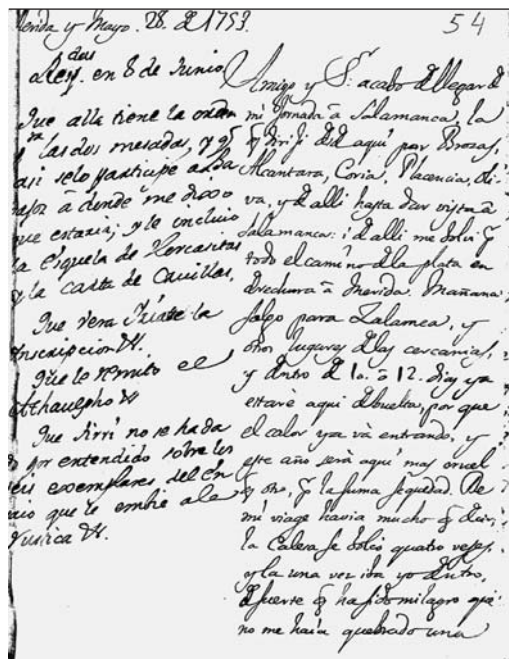 Merida y Mayo. 28. d 1753.
54
Rey.dos en 8 de Junio
Que alla tiene la orden
las dos mesadas, y qe
asi selo participe a Ba
dajoz â donde me dixo
que estaria; y le incluio
la Esquela de Horcasitas
y la carta de Casillas.
Que vera Iriate la
Inscripcion &.
Que le remito el
Athaulpho &
Que Sirri no se ha da
do por entendido sobre los
seis exemplares del En
saio que le embie a la
Rustica &.
Amigo y Sr. acabo d llegar d
mi jornada â Salamanca, la
q dirijî dsd aquî por Brozas,
Alcantara, Coria, Placencia, Oli-
va, y d alli hasta dar vista â
Salamanca: i d alli me bolvi pr
todo el camino d la plata en
drechura â Merida. Mañana
salgo para Zalamea, y
otros lugares d las cercanias,
y dntro d 10. ô 12. dias ya
estarè aqui d buelta, por que
el calor ya và entrando, y
este año serà aquî mas cruel
q otro, pr la suma sequedad. De
mi viage havia mucho q dcir,
la Calesa se bolcò quatro vezes,
y la una vez iba yo dntro,
d suerte q ha sido milagro que
no me haia quebrado una